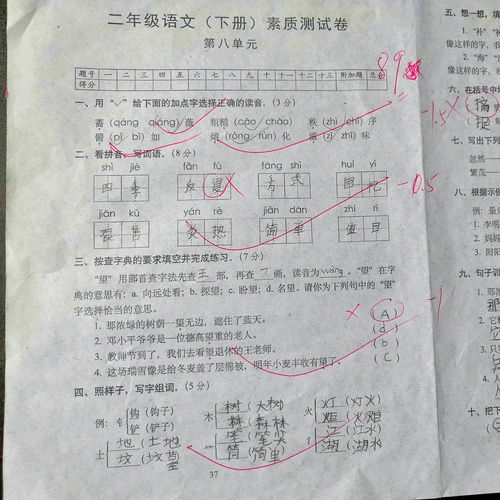 二年级语文（下册）素质测试卷
第八单元
题号 一 二 三 四 五 六 七 八 九 十 十一 十二 十三 附加题 总分
得分
89
一、用“✓”给下面的加点字选择正确的读音。（3 分）
蔷（qáng qiáng）薇 粗糙（cāo chāo） 秩（zhì chì）序
譬（pì bì）如 熔（róng rún）化 滋（zī zhī）味
二、看拼音，写词语。（8 分）
-0.5
shì jiè fǎn fù fāng shì huí yì
四季 反复 方式 回忆
jiān kǔ yán rè jiǎn dān zhí rì
艰苦 炎热 简单 值日
三、按查字典的要求填空并完成练习。（7 分）
“望”用部首查字法先查王部，再查7画，读音为wàng。“望”在字
典的意思有：a. 向远处看；b. 探望；c. 盼望；d. 名望。请你为下列句中的“望”
字选择恰当的意思。
1. 那浓绿的树荫一望无边，遮住了蓝天。（A）
-1
2. 邓小平爷爷是一位德高望重的老人。（d）
3. 教师节到了，我们去看望退休的王老师。（b）
4. 这场瑞雪像是给冬麦盖了层棉被，明年小麦丰收有望了。（C）
四、照样子，写字组词。（5 分）
例：钅 钩（钩子） 木 树（大树） 火 灯（灯火）
铲（铲子） 林（森林
土 地（土地 笔（笔尖 江（江水
坟（坟墓 筒 湖（湖水
37
五、想一想，填
1. “补”
像这样的字，我
2. “海”
像这样的字，我
六、在括号中填
-1.5
七、写出下列
忽然——
繁茂——
八、根据示例
例：最
1. 李明
2. 妈妈
3. 阳阳
九、句子训
1. 那浓
2. 它
3. 只
十、把下